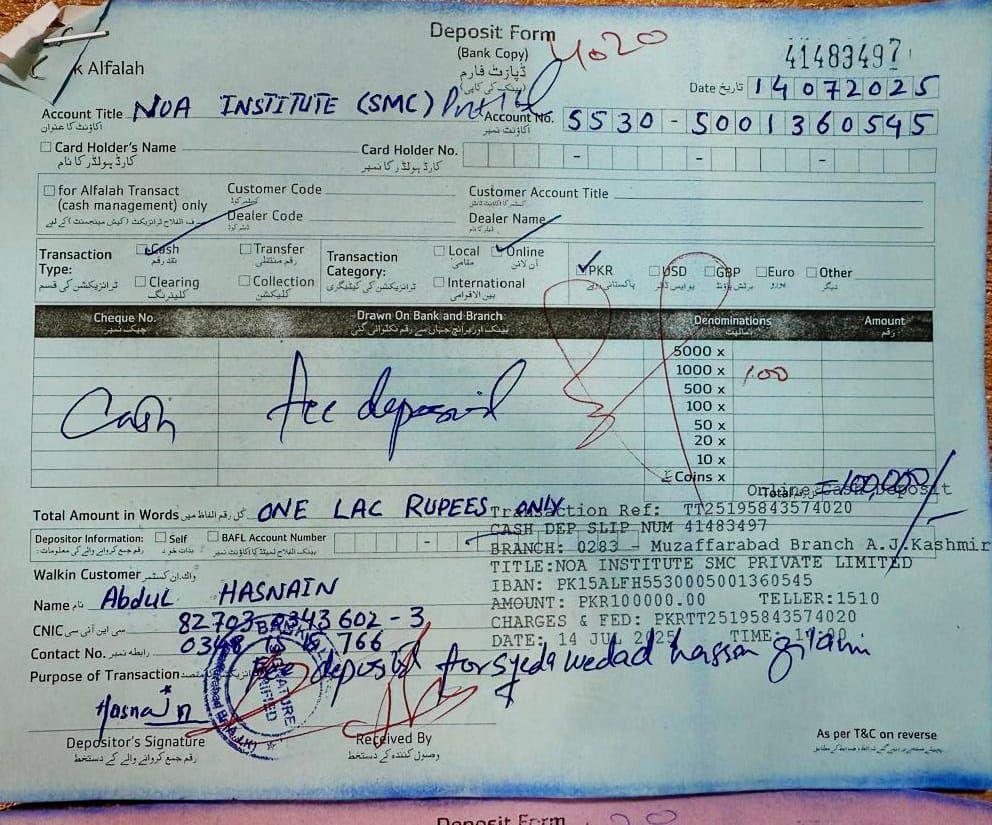 Deposit Form
(Bank Copy)
ڈپازٹ فارم
(بینک کی کاپی)
4020
41483497
k Alfalah
Date تاریخ 14072025
Account Title NOA INSTITUTE (SMC) Pvt Ltd
اکاؤنٹ کا عنوان
Account No. 5530-5001360545
اکاؤنٹ نمبر
Card Holder's Name
کارڈ ہولڈر کا نام
Card Holder No.
کارڈ ہولڈر کا نمبر
for Alfalah Transact
(cash management) only
Customer Code
Customer Account Title
Dealer Code
Dealer Name
Transaction Type:
ٹرانزیکشن کی قسم
Cash
نقد رقم
Transfer
رقم منتقلی
Clearing
کلیئرنگ
Collection
کلیکشن
Transaction Category:
ٹرانزیکشن کی کیٹیگری
Local
مقامی
Online
آن لائن
International
بین الاقوامی
PKR
پاکستانی روپے
USD
یو ایس ڈالر
GBP
برٹش پاؤنڈ
Euro
یورو
Other
دیگر
Cheque No.
چیک نمبر
Drawn On Bank and Branch
Denominations
Amount
رقم
5000 x
1000 x 100
500 x
100 x
50 x
20 x
10 x
Coins x
Cash
Fee deposid
Total =100,000/-
Total Amount in Words کل رقم الفاظ میں ONE LAC RUPEES ONLY
Online Cash Deposit
Transaction Ref: TT25195843574020
CASH DEP SLIP NUM 41483497
BRANCH: 0283 - Muzaffarabad Branch A.J.Kashmir
TITLE:NOA INSTITUTE SMC PRIVATE LIMITED
IBAN: PK15ALFH5530005001360545
AMOUNT: PKR100000.00 TELLER:1510
CHARGES & FED: PKRTT25195843574020
DATE: 14 JUL 2025 TIME:
Depositor Information:
رقم جمع کروانے والے کی معلومات:
Self
بذات خود
BAFL Account Number
Walkin Customer واک ان کسٹمر
Name نام Abdul HASNAIN
CNIC سی این آئی سی 82703 0343602-3
Contact No. رابطہ نمبر 766
Purpose of Transaction Fee deposid for syeda wedad hassan gilani
SIGNATURE
VERIFIED
Hasnain
Depositor's Signature
رقم جمع کروانے والے کے دستخط
Received By
وصول کنندہ کے دستخط
As per T&C on reverse
Deposit Form